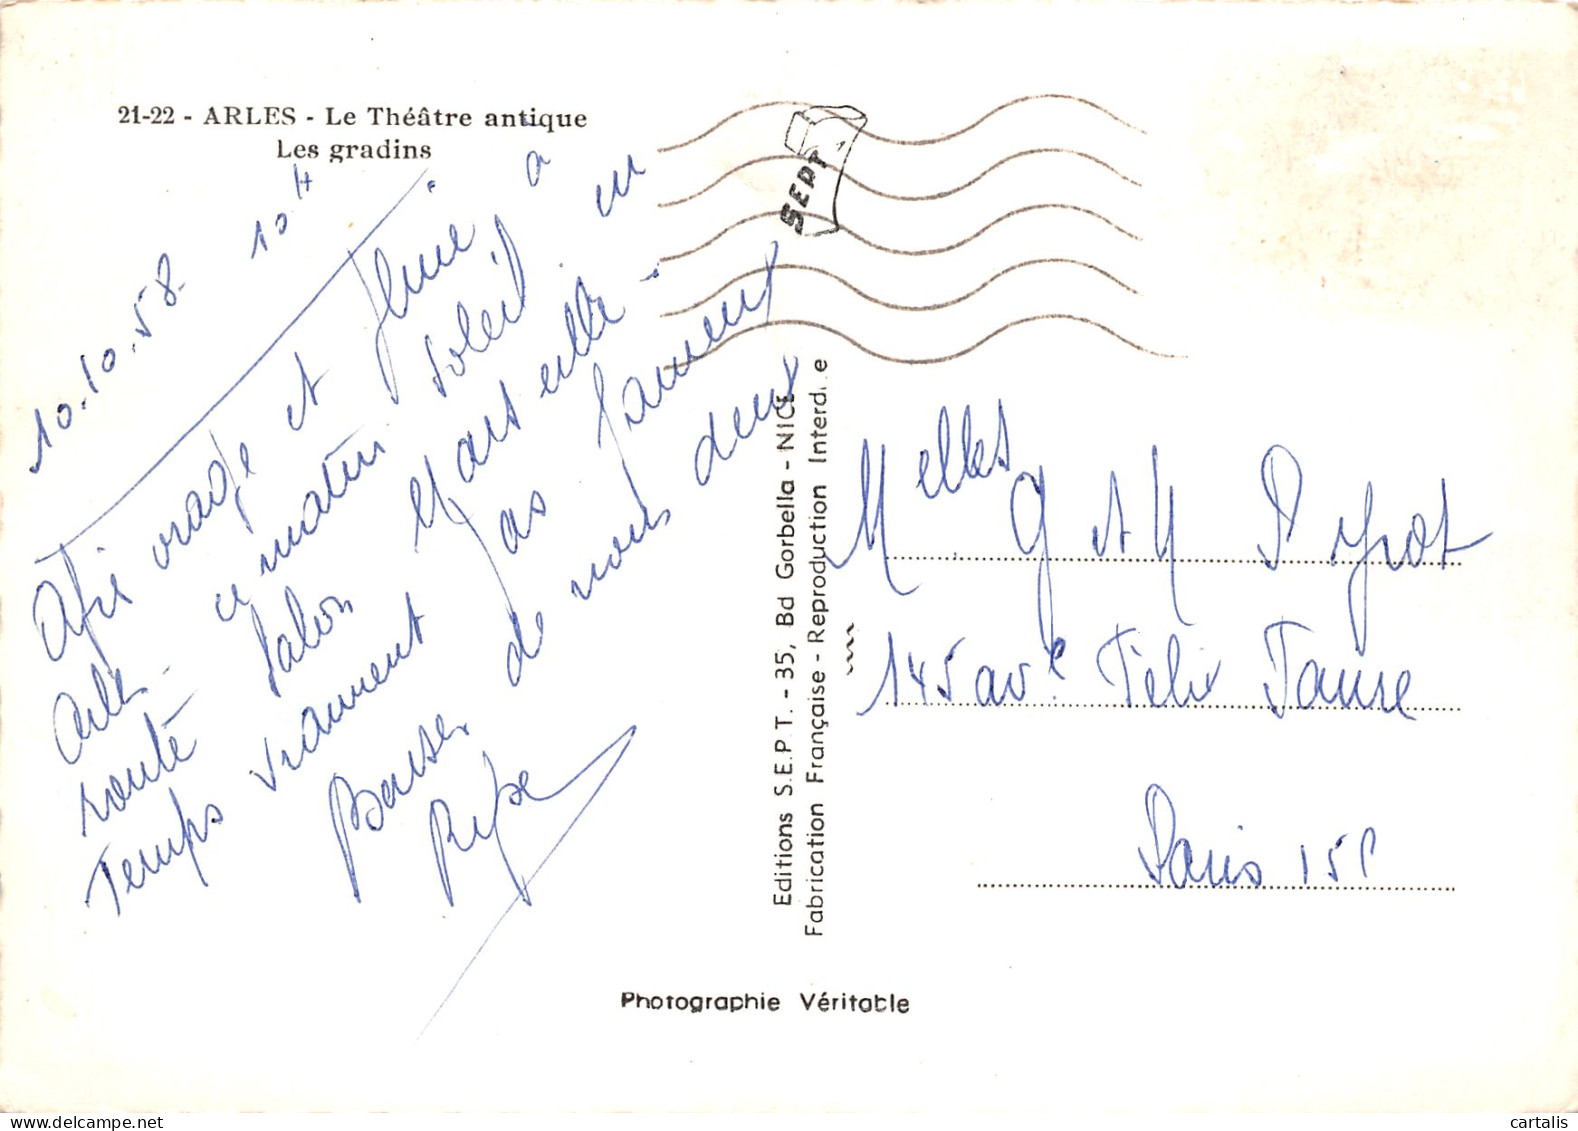 21-22 - ARLES - Le Théâtre antique
Les gradins
10.10.58. 10 H
orage et pluie à
Arles - ce matin soleil en
route Salon Marseille -
Temps vraiment pas fameux
de nous deux
SEPT
Editions S.E.P.T. - 35, Bd Gorbella - NICE
Fabrication Française - Reproduction Interdi e
Melles G et M
145 ave Félix Faure
Paris 15e
Photographie Véritable
cartalis